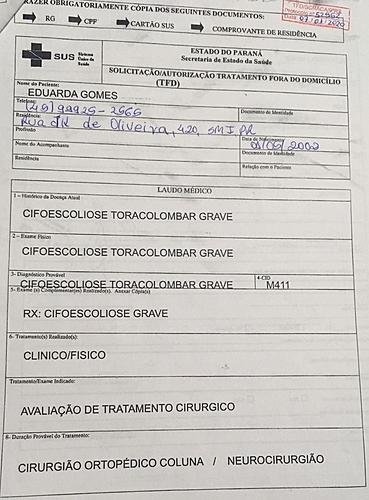 TRAZER OBRIGATORIAMENTE CÓPIA DOS SEGUINTES DOCUMENTOS:
RG CPF CARTÃO SUS COMPROVANTE DE RESIDÊNCIA
07/01/2020
SUS Sistema Único de Saúde
ESTADO DO PARANÁ
Secretaria de Estado da Saúde
SOLICITAÇÃO/AUTORIZAÇÃO TRATAMENTO FORA DO DOMICÍLIO
(TFD)
Nome do Paciente:
EDUARDA GOMES
Telefone:
(45) 99925-2565
Documento de Identidade
Residência:
Rua de Oliveira, 420, SMI PR
Profissão
Data de Nascimento
/05/2002
Nome do Acompanhante
Documento de Identidade
Residência
Relação com o Paciente
LAUDO MÉDICO
1 – Histórico da Doença Atual
CIFOESCOLIOSE TORACOLOMBAR GRAVE
2 – Exame Físico
CIFOESCOLIOSE TORACOLOMBAR GRAVE
3- Diagnóstico Provável
4-CID
CIFOESCOLIOSE TORACOLOMBAR GRAVE
M411
5- Exame(s) Complementar(es) Realizado(s). Anexar Cópia(s)
RX: CIFOESCOLIOSE GRAVE
6- Tratamento(s) Realizado(s):
CLINICO/FISICO
Tratamento/Exame Indicado:
AVALIAÇÃO DE TRATAMENTO CIRURGICO
8- Duração Provável do Tratamento:
CIRURGIÃO ORTOPÉDICO COLUNA / NEUROCIRURGIÃO